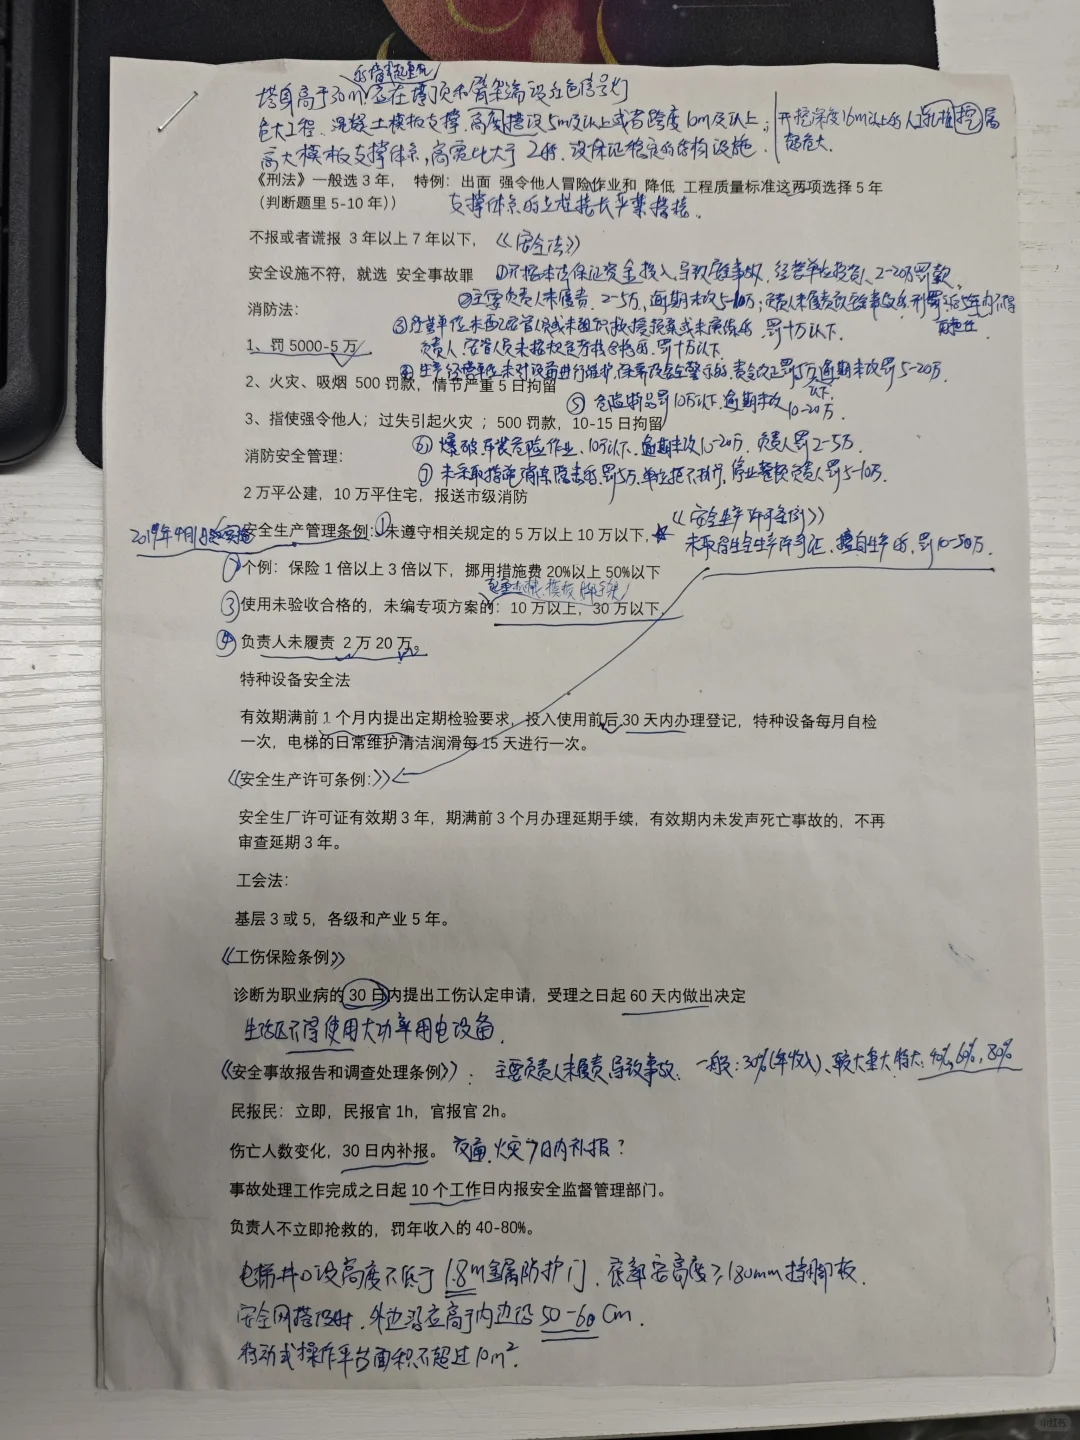 塔身高于30m,应在塔顶和臂架端设红色信号灯
危大工程. 混凝土模板支撑. 高度搭设5m及以上或者跨度10m及以上;
开挖深度16m以上的人工孔桩挖属
超危大.
高大模板支撑体系,高宽比大于2时. 设保证稳定的结构设施.
《刑法》一般选3年, 特例:出面 强令他人冒险作业和 降低 工程质量标准这两项选择5年
(判断题里5-10年))
支撑体系的立柱接长严禁搭接.
不报或者谎报 3年以上7年以下,
《安全法》
安全设施不符,就选 安全事故罪
①不按本法保证资金投入,导致 事故. 经营单位投资人2-20万罚款.
②主要负责人未履责. 2-5万,逾期未改5-10万;负责人未履责致 事故的.刑罚后5年内不得
消防法:
③ 单位未 或未组织救援预案或未演练的. 罚十万以下.
1、罚5000-5万
负责人.安管人员未按规定考核合格的.罚十万以下.
④生产经营单位未对设备进行维护.保养及安全警示的.责令改正罚5万以下 逾期未改罚5-20万.
2、火灾、吸烟 500罚款,情节严重5日拘留
⑤ 危险物品罚10万以下.逾期未改10-20万.
3、指使强令他人;过失引起火灾 ;500罚款,10-15日拘留
⑥ 爆破.吊装危险作业. 10万以下. 逾期未改10-20万. 负责人罚2-5万.
消防安全管理:
⑦ 未采取措施消除隐患的.罚5万.单位拒不执行,停业整顿负责人罚5-10万.
2万平公建,10万平住宅,报送市级消防
2019年4月 实施
安全生产管理条例:①未遵守相关规定的5万以上10万以下,
《安全生产许可条例》
未取得安全生产许可证、擅自生产的,罚10-50万.
②个例:保险1倍以上3倍以下,挪用措施费20%以上50%以下
起重机械,模板,脚手架
③使用未验收合格的,未编专项方案的:10万以上,30万以下
④负责人未履责 2万20万。
特种设备安全法
有效期满前1个月内提出定期检验要求,投入使用前后30天内办理登记,特种设备每月自检
一次,电梯的日常维护清洁润滑每15天进行一次。
《安全生产许可条例:》
安全生厂许可证有效期3年,期满前3个月办理延期手续,有效期内未发声死亡事故的,不再
审查延期3年。
工会法:
基层3或5,各级和产业5年。
《工伤保险条例》
诊断为职业病的30日内提出工伤认定申请,受理之日起60天内做出决定
生活区不得使用大功率用电设备.
《安全事故报告和调查处理条例》:主要负责人未履责,导致事故. 一般:30%(年收入)、较大重大特大:40%,60%,80%
民报民:立即,民报官1h,官报官2h。
伤亡人数变化,30日内补报。 交通、火灾7日内补报?
事故处理工作完成之日起10个工作日内报安全监督管理部门。
负责人不立即抢救的,罚年收入的40-80%。
电梯井口设高度不低于1.8m金属防护门、底部安高度≥180mm挡脚板.
安全网搭设时.外边沿应高于内边沿50-60cm.
移动式操作平台面积不超过10m².
小红书